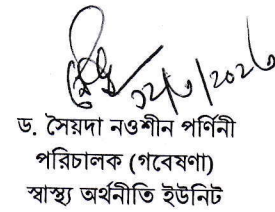 ১২/৬/২০২৬
ড. সৈয়দা নওশীন পর্ণিনী
পরিচালক (গবেষণা)
স্বাস্থ্য অর্থনীতি ইউনিট